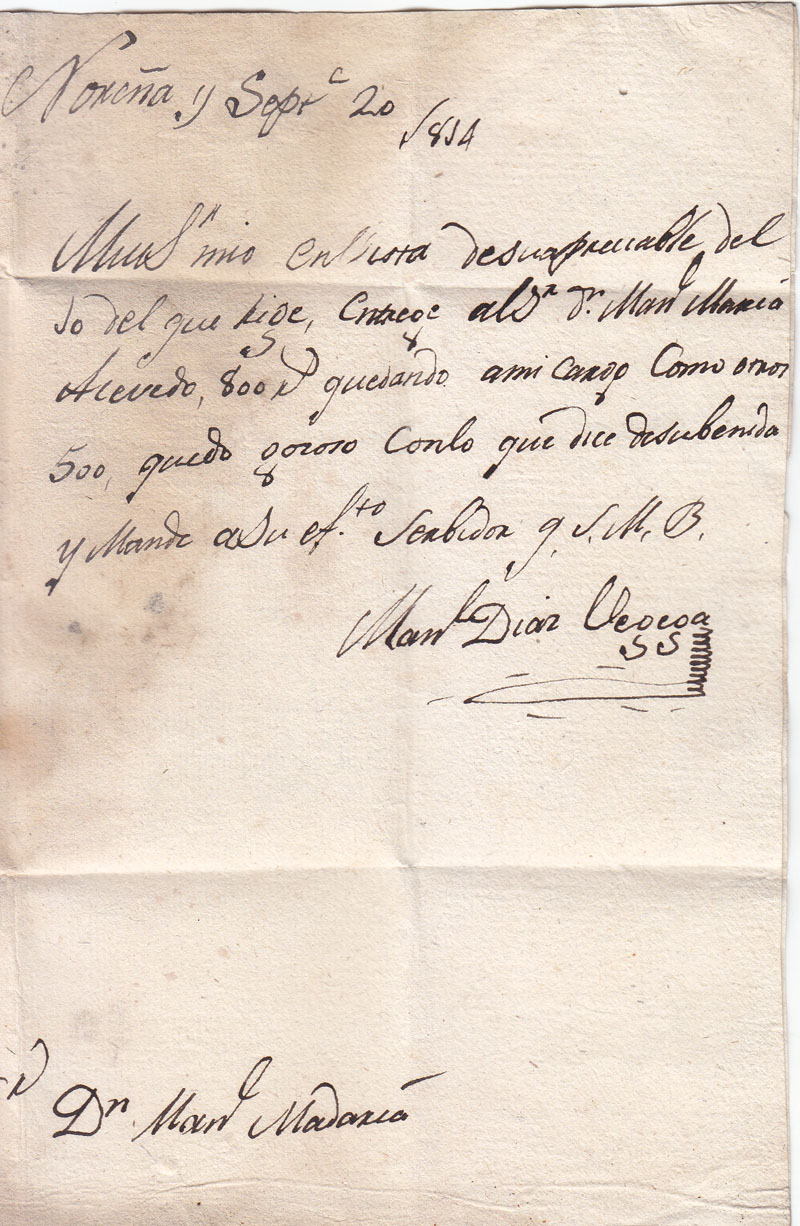 Noreña y Sept.e 20
1814
Muo Sr mio en Vista desu apreciable del
10 del que Rige, Entrege al Sr dn. Manl Maria
Acevedo, 800 rs quedando ami cargo Como otros
500, quedo gozoso Conlo que dice desubenida
y Mande asu ef.to Serbidor q. S. M. B.
Manl Diaz
Sr Dn Manl Madaria